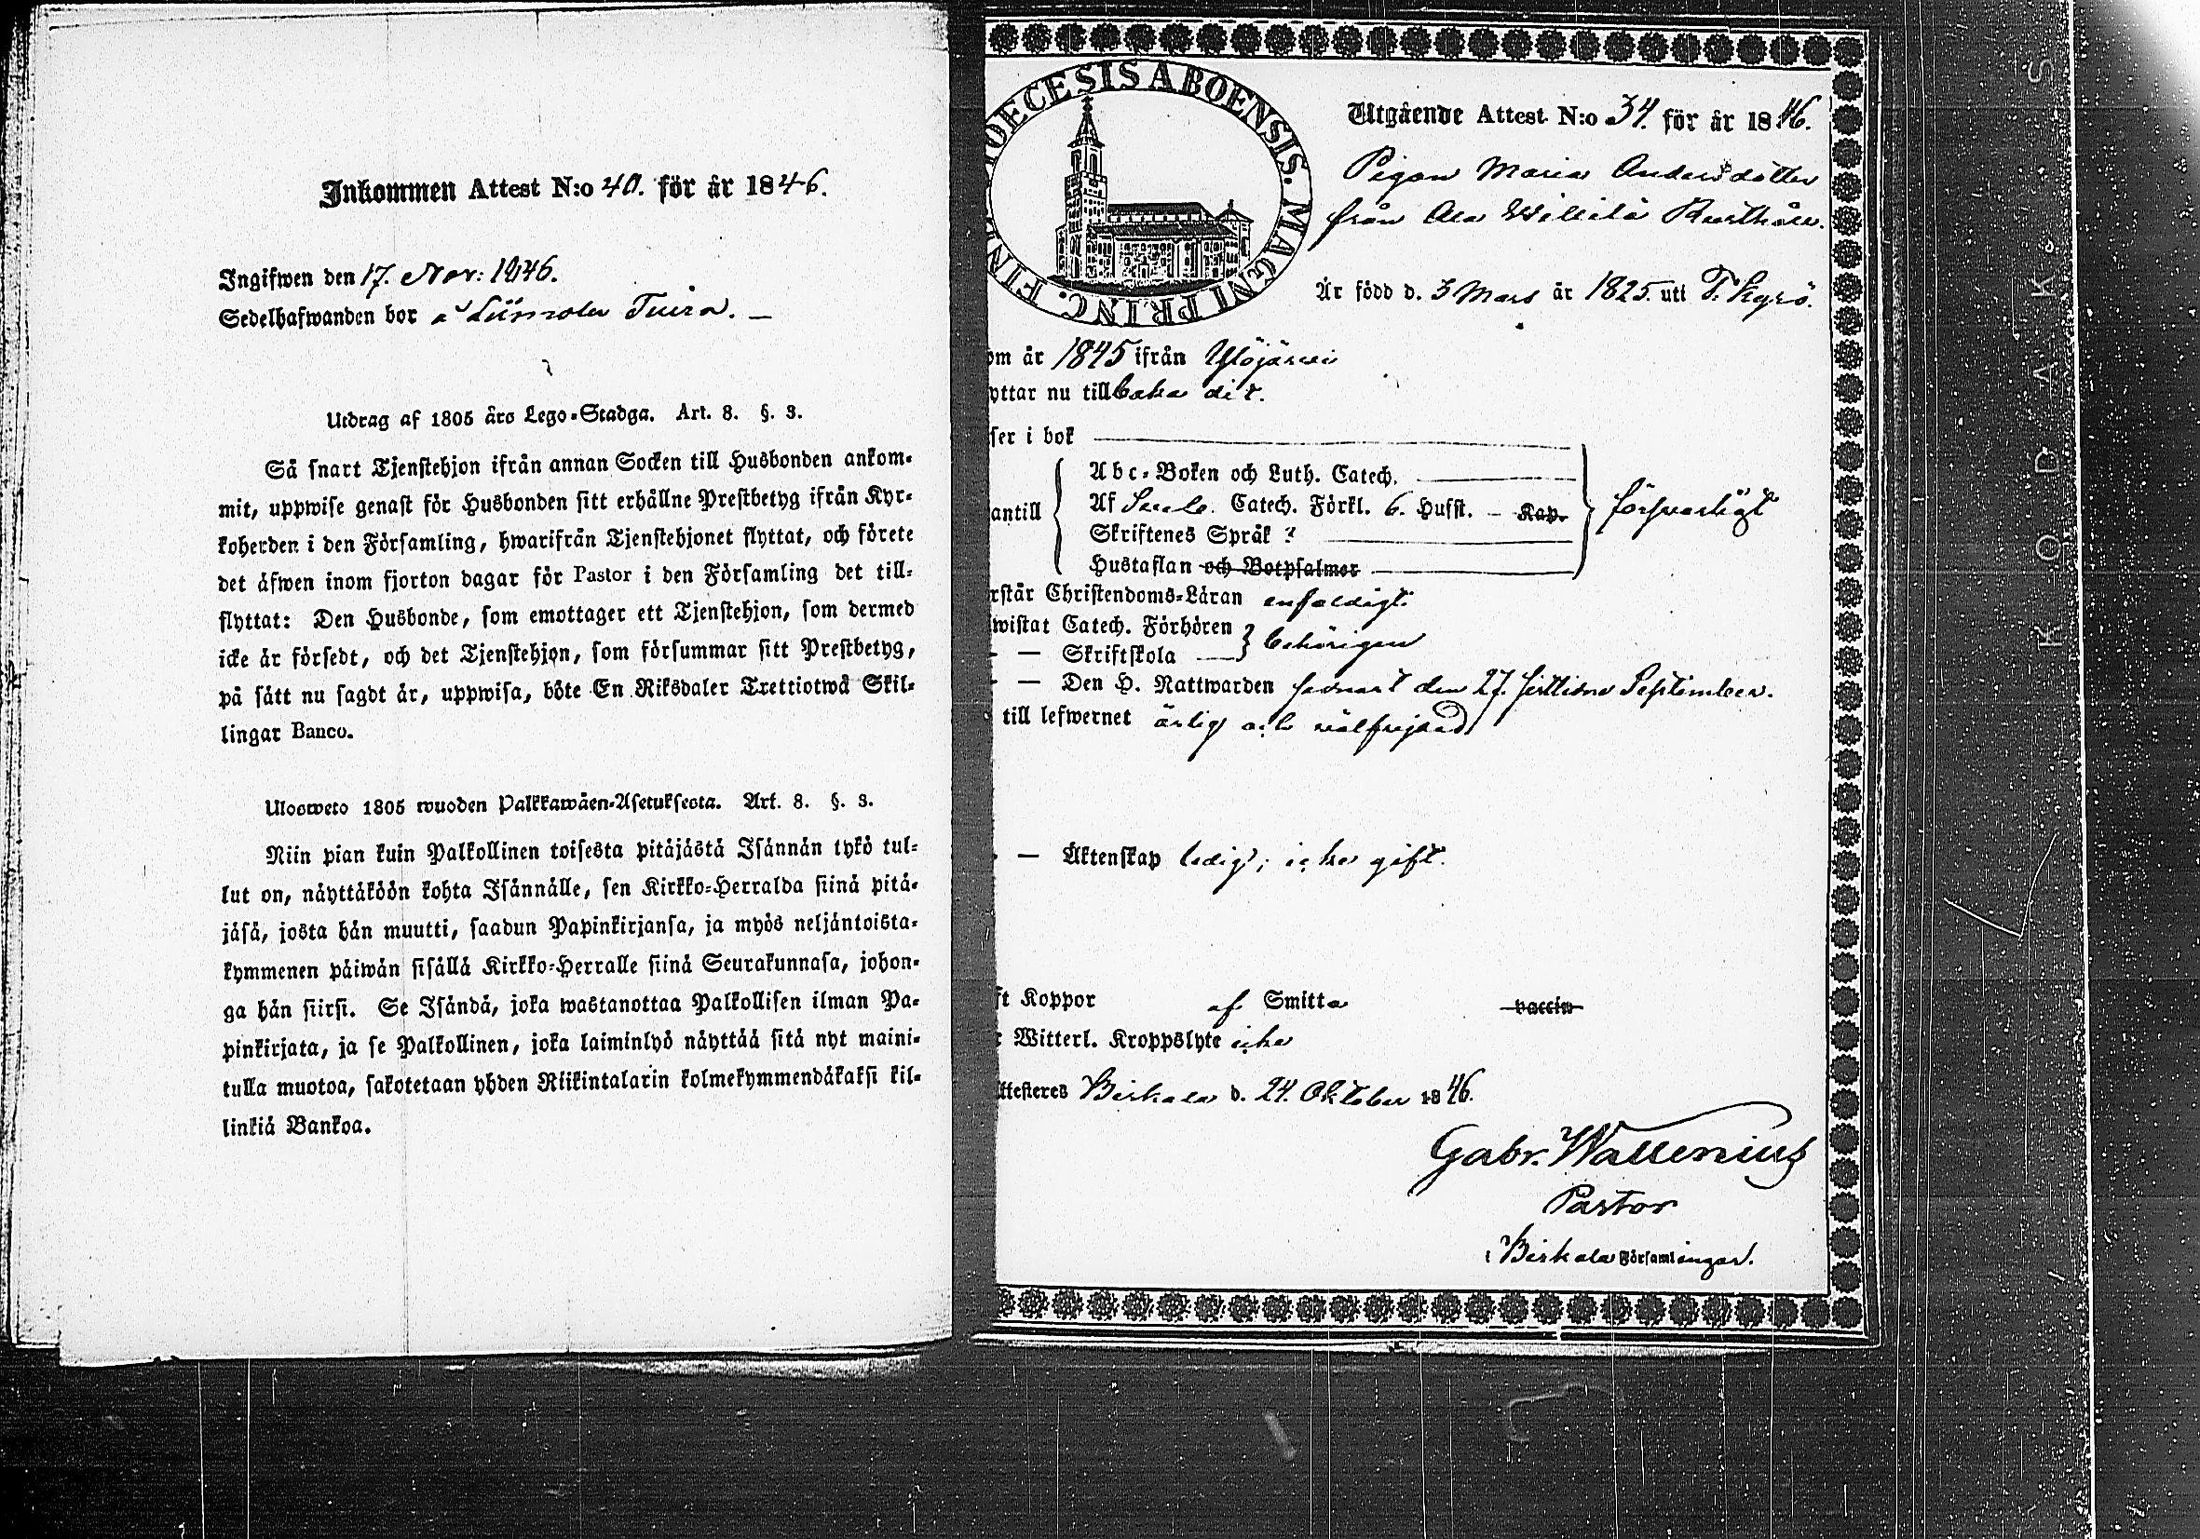 Inkommen Attest N:o 40. för år 1846.
Ingifwen den 17. Nov: 1846.
Sedelhafwanden bor
Utdrag af 1805 års Lego-Stadga. Art. 8. §. 3.
Så snart Tjenstehjon ifrån annan Socken till Husbonden ankom-
mit, uppwise genast för Husbonden sitt erhållne Prestbetyg ifrån Kyr-
koherden i den Församling, hwarifrån Tjenstehjonet flyttat, och förete
det äfwen inom fjorton dagar för Pastor i den Församling det till-
flyttat: Den Husbonde, som emottager ett Tjenstehjon, som dermed
icke är försedt, och det Tjenstehjon, som försummar sitt Prestbetyg,
på sätt nu sagdt är, uppwisa, böte En Riksdaler Trettiotwå Skil-
lingar Banco.
Ulosweto 1805 wuoden Palkkawäen-Asetuksesta. Art. 8. §. 3.
Niin pian kuin Palkollinen toisesta pitäjästä Isännän tykö tul-
lut on, näyttäköön kohta Isännälle, sen Kirkko-Herralda siinä pitä-
jäsä, josta hän muutti, saadun Papinkirjansa, ja myös neljäntoista-
kymmenen päiwän sisällä Kirkko-Herralle siinä Seurakunnasa, johon-
ga hän siirsi. Se Isändä, joka wastanottaa Palkollisen ilman Pa-
pinkirjata, ja se Palkollinen, joka laiminlyö näyttää sitä nyt maini-
tulla muotoa, sakotetaan yhden Riikintalarin kolmekymmendäkaksi kil-
linkiä Bankoa.
DIOECESIS ABOENSIS. MAGNI PRINC. FINL
Utgående Attest N:o 34. för år 1846.
Pigan Maria Andersdotter
från Ala Willilä Rusthåll.
Är född d. 3 Mars år 1825. uti T. Kyrö.
om år 1845 ifrån Ylöjärwi
yttar nu tillbaka dit.
ser i bok
antill
Abc-Boken och Luth. Catech.
Af Catech. Förkl. 6. Hufst. – Kap.
Skriftenes Språk ?
Hustaflan och Botpsalmer
försvarligt
rstår Christendoms-Läran enfaldigt.
wistat Catech. Förhören
– – Skriftskola
behörigen
– – Den H. Nattwarden senast den 27. sistlidne September.
till lefwernet ärlig och välfrejdad
– – Äktenskap ledig; icke gift.
ft Koppor af Smitta vaccin
r Witterl. Kroppslyte icke
Attesteres Birkala d. 24. Oktober 1846.
Gabr. Wallenius
Pastor
i Birkala Församlingar.
KODAK S